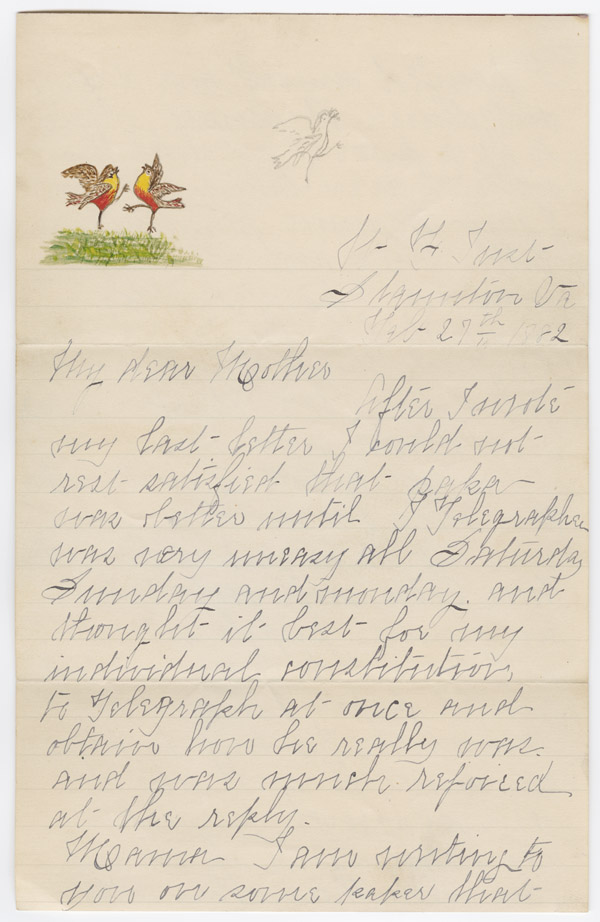 Staunton Va
Feb 27th 1882
My dear Mother
After I wrote
my last letter I could not
rest satisfied that papa
was better until I Telegraphed
was very uneasy all Saturday
Sunday and monday. and
thought it best for my
individual constitution,
to Telegraph at once and
obtain how he really was.
and was much rejoiced
at the reply.
Mama I am writing to
you on some paper that